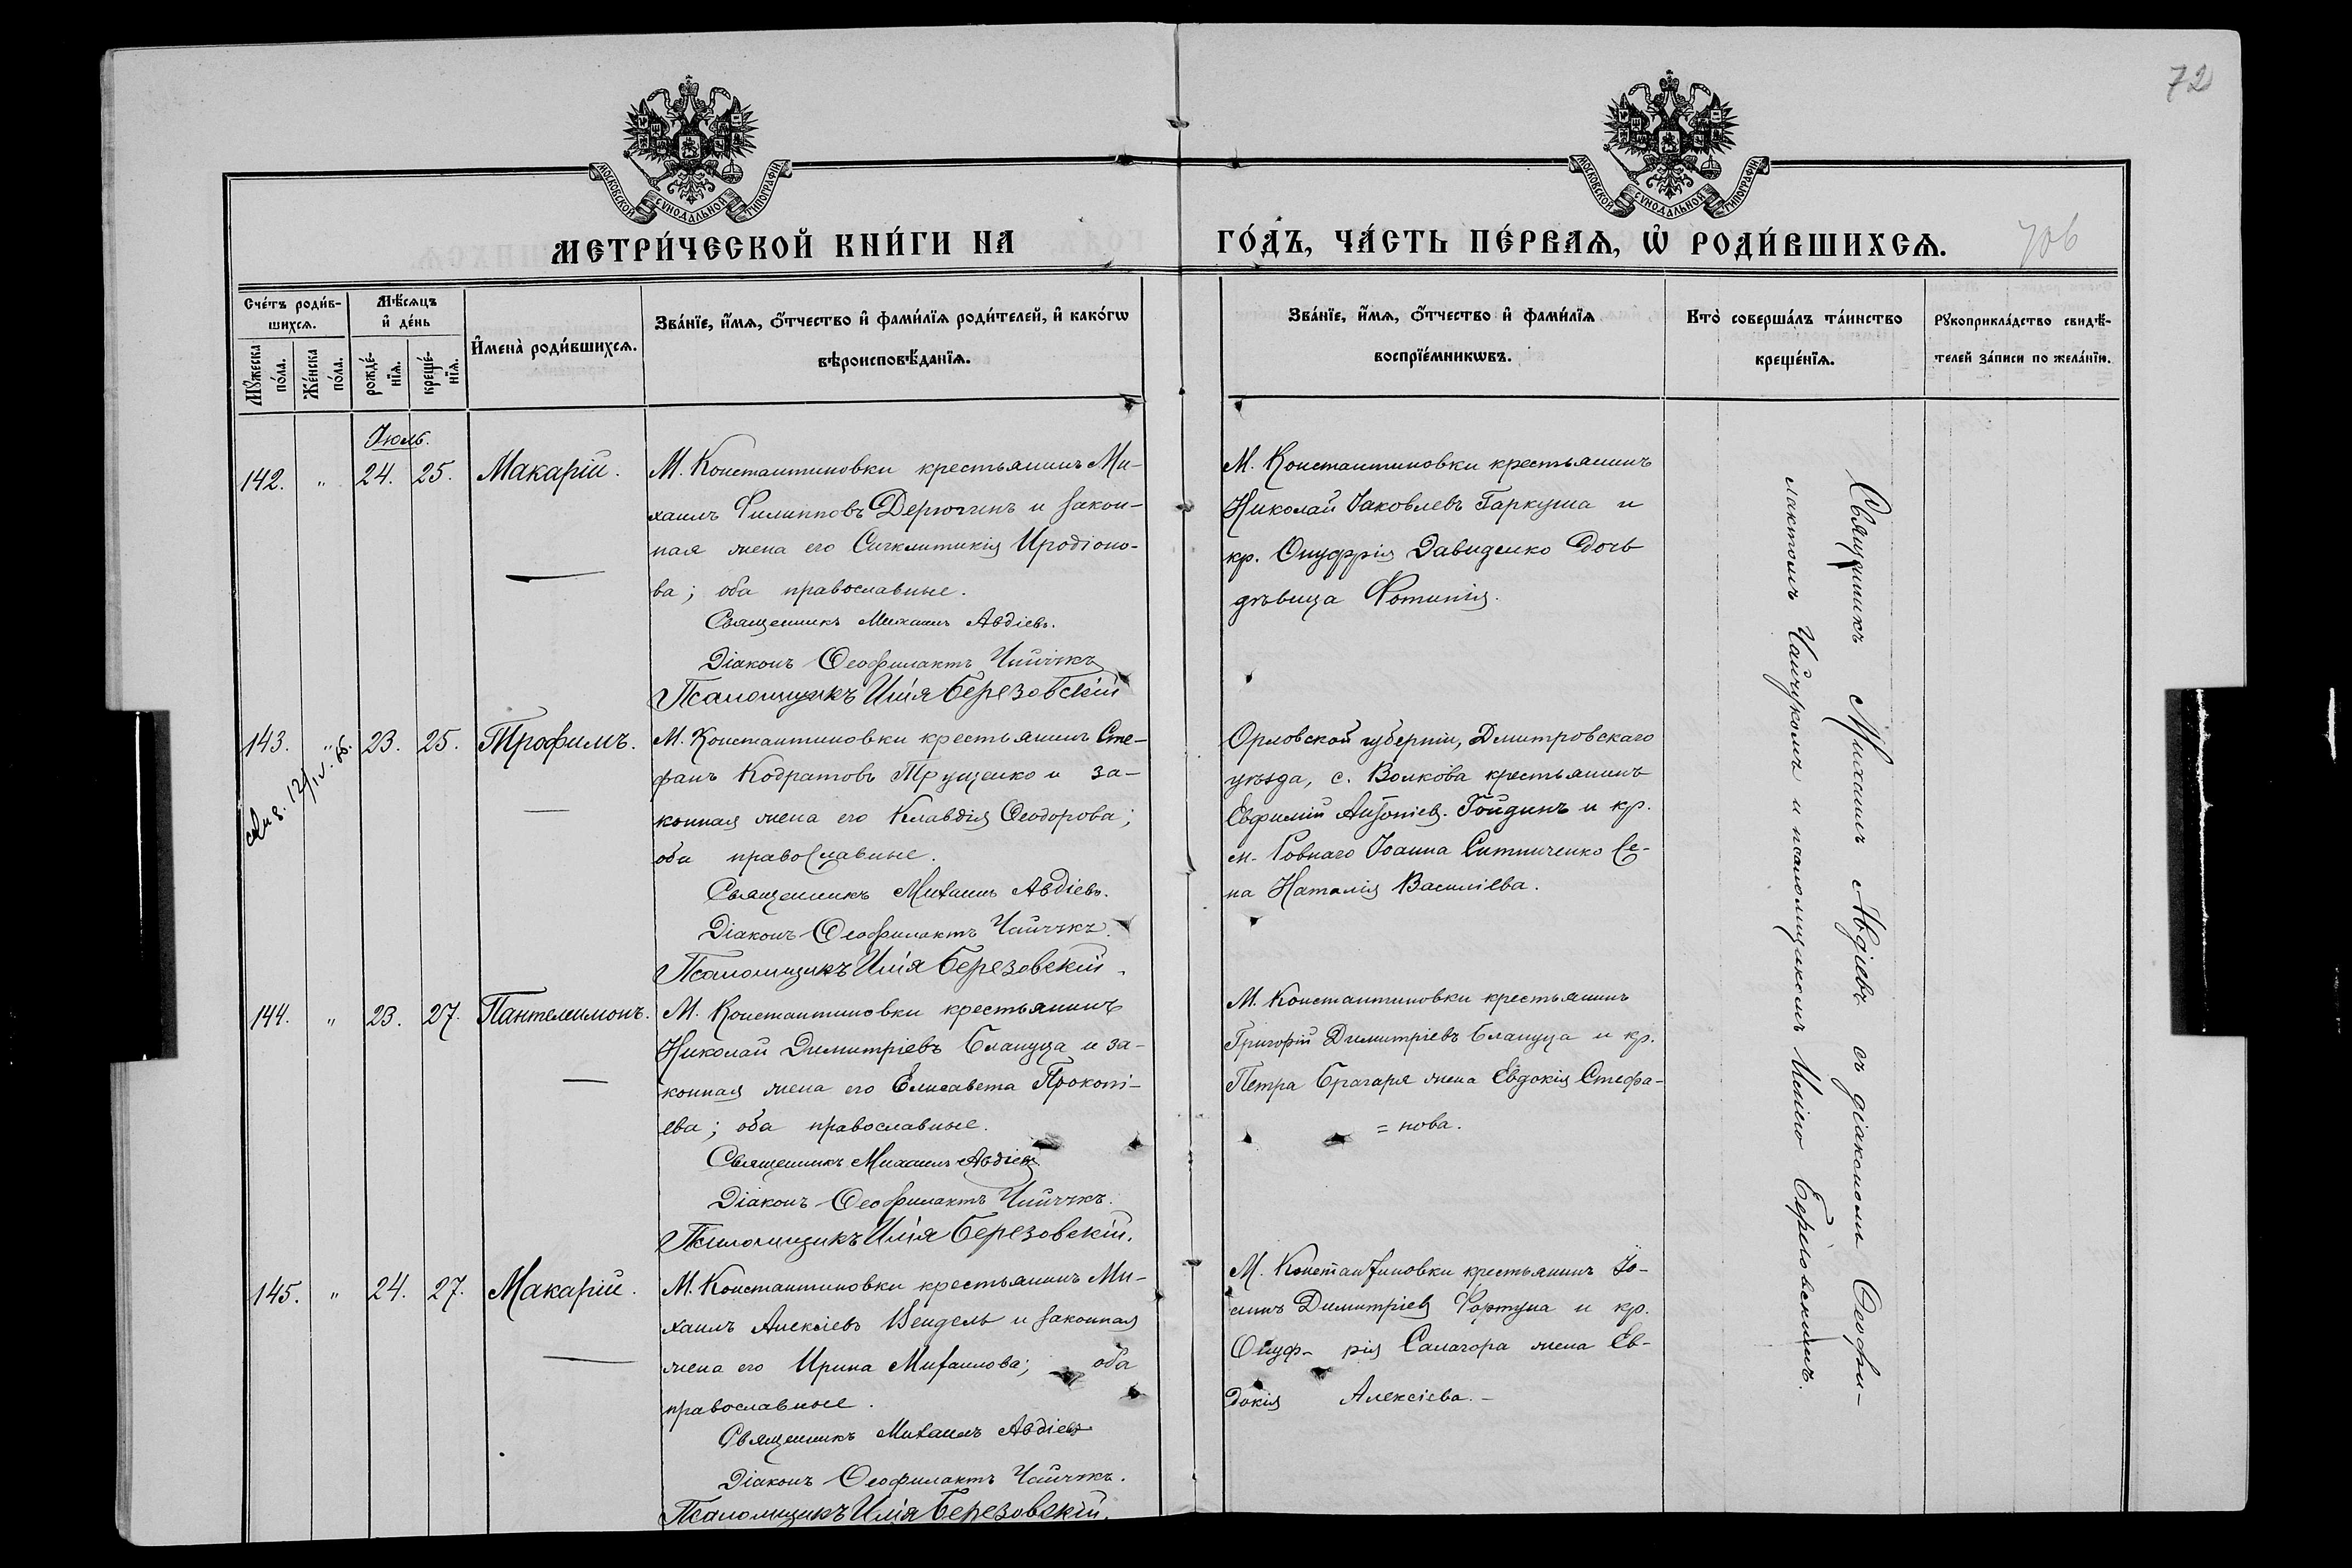 72
МОСКОВСКОЙ СѴНОДАЛЬНОЙ ТИПОГРАФІИ
МОСКОВСКОЙ СѴНОДАЛЬНОЙ ТИПОГРАФІИ
МЕТРИ́ЧЕСКОЙ КНИ́ГИ НА ГО́ДЪ, ЧА́СТЬ ПЕ́РВАѦ, Ѡ҆ РОДИ́ВШИХСѦ.
706
Сче́тъ роди́в-
шихсѧ.
Мꙋ́жеска
по́ла.
Же́нска
по́ла.
Мѣ́сѧцъ
и҆ де́нь
рожде́-
нїѧ.
креще́-
нїѧ.
И҆мена̀ роди́вшихсѧ.
Зва́нїе, и҆́мѧ, ѻ҆́тчество и҆ фами́лїѧ роди́телей, и҆ како́гѡ
вѣроисповѣ́данїѧ.
Зва́нїе, и҆́мѧ, ѻ҆́тчество и҆ фами́лїѧ
воспрїе́мникѡвъ.
Кто̀ соверша́лъ та́инство
креще́нїѧ.
Рꙋкоприкла́дство свидѣ́-
телей за́писи по жела́нїю.
Іюль.
142. " 24. 25. Макарій.
М. Константиновки крестьянинъ Ми-
хаилъ Филипповъ Дерюгинъ и закон-
ная жена его Сигклитикія Иродіоно-
ва; оба православные.
Священникъ Михаилъ Авдіевъ.
Діаконъ Ѳеофилактъ Чайчукъ
Псаломщикъ Илія Березовскій
М. Константиновки крестьянинъ
Николай Іаковлевъ Гаркуша и
кр. Онуфрія Давиденко дочь
дѣвица Фотинія.
143. " 23. 25. Трофимъ.
М. Константиновки крестьянинъ Сте-
фанъ Кодратовъ Трущенко и за-
конная жена его Клавдія Ѳеодорова;
оба православные.
Священникъ Михаилъ Авдіевъ.
Діаконъ Ѳеофилактъ Чайчукъ.
Псаломщикъ Илія Березовскій.
Орловской губерніи, Дмитровскаго
уѣзда, с. Волкова крестьянинъ
Евфимій Антоніев. Гойдинъ и кр.
м. Ровнаго Іоанна Ситниченко же-
на Наталія Василіева.
144. " 23. 27. Пантелеимонъ.
М. Константиновки крестьянинъ
Николай Димитріевъ Блануца и за-
конная жена его Елисавета Прокопі-
ева; оба православные.
Священникъ Михаилъ Авдіевъ
Діаконъ Ѳеофилактъ Чайчукъ.
Псаломщикъ Илія Березовскій.
М. Константиновки крестьянинъ
Григорій Димитріевъ Блануца и кр.
Петра Брагаря жена Евдокія Стефа-
= нова.
145. " 24. 27. Макарій.
М. Константиновки крестьянинъ Ми-
хаилъ Алексіевъ Вендель и законная
жена его Ирина Михаилова; оба
православные.
Священникъ Михаилъ Авдіевъ
Діаконъ Ѳеофилактъ Чайчукъ.
Псаломщикъ Илія Березовскій.
М. Константиновки крестьянинъ Іо-
аннъ Димитріевъ Фортуна и кр.
Онуф- рія Саламора жена Ев-
докія Алексіева.-
Священникъ Михаилъ Авдіевъ съ діакономъ Ѳеофи-
лактомъ Чайчукомъ и псаломщикомъ Иліею Березовскимъ.